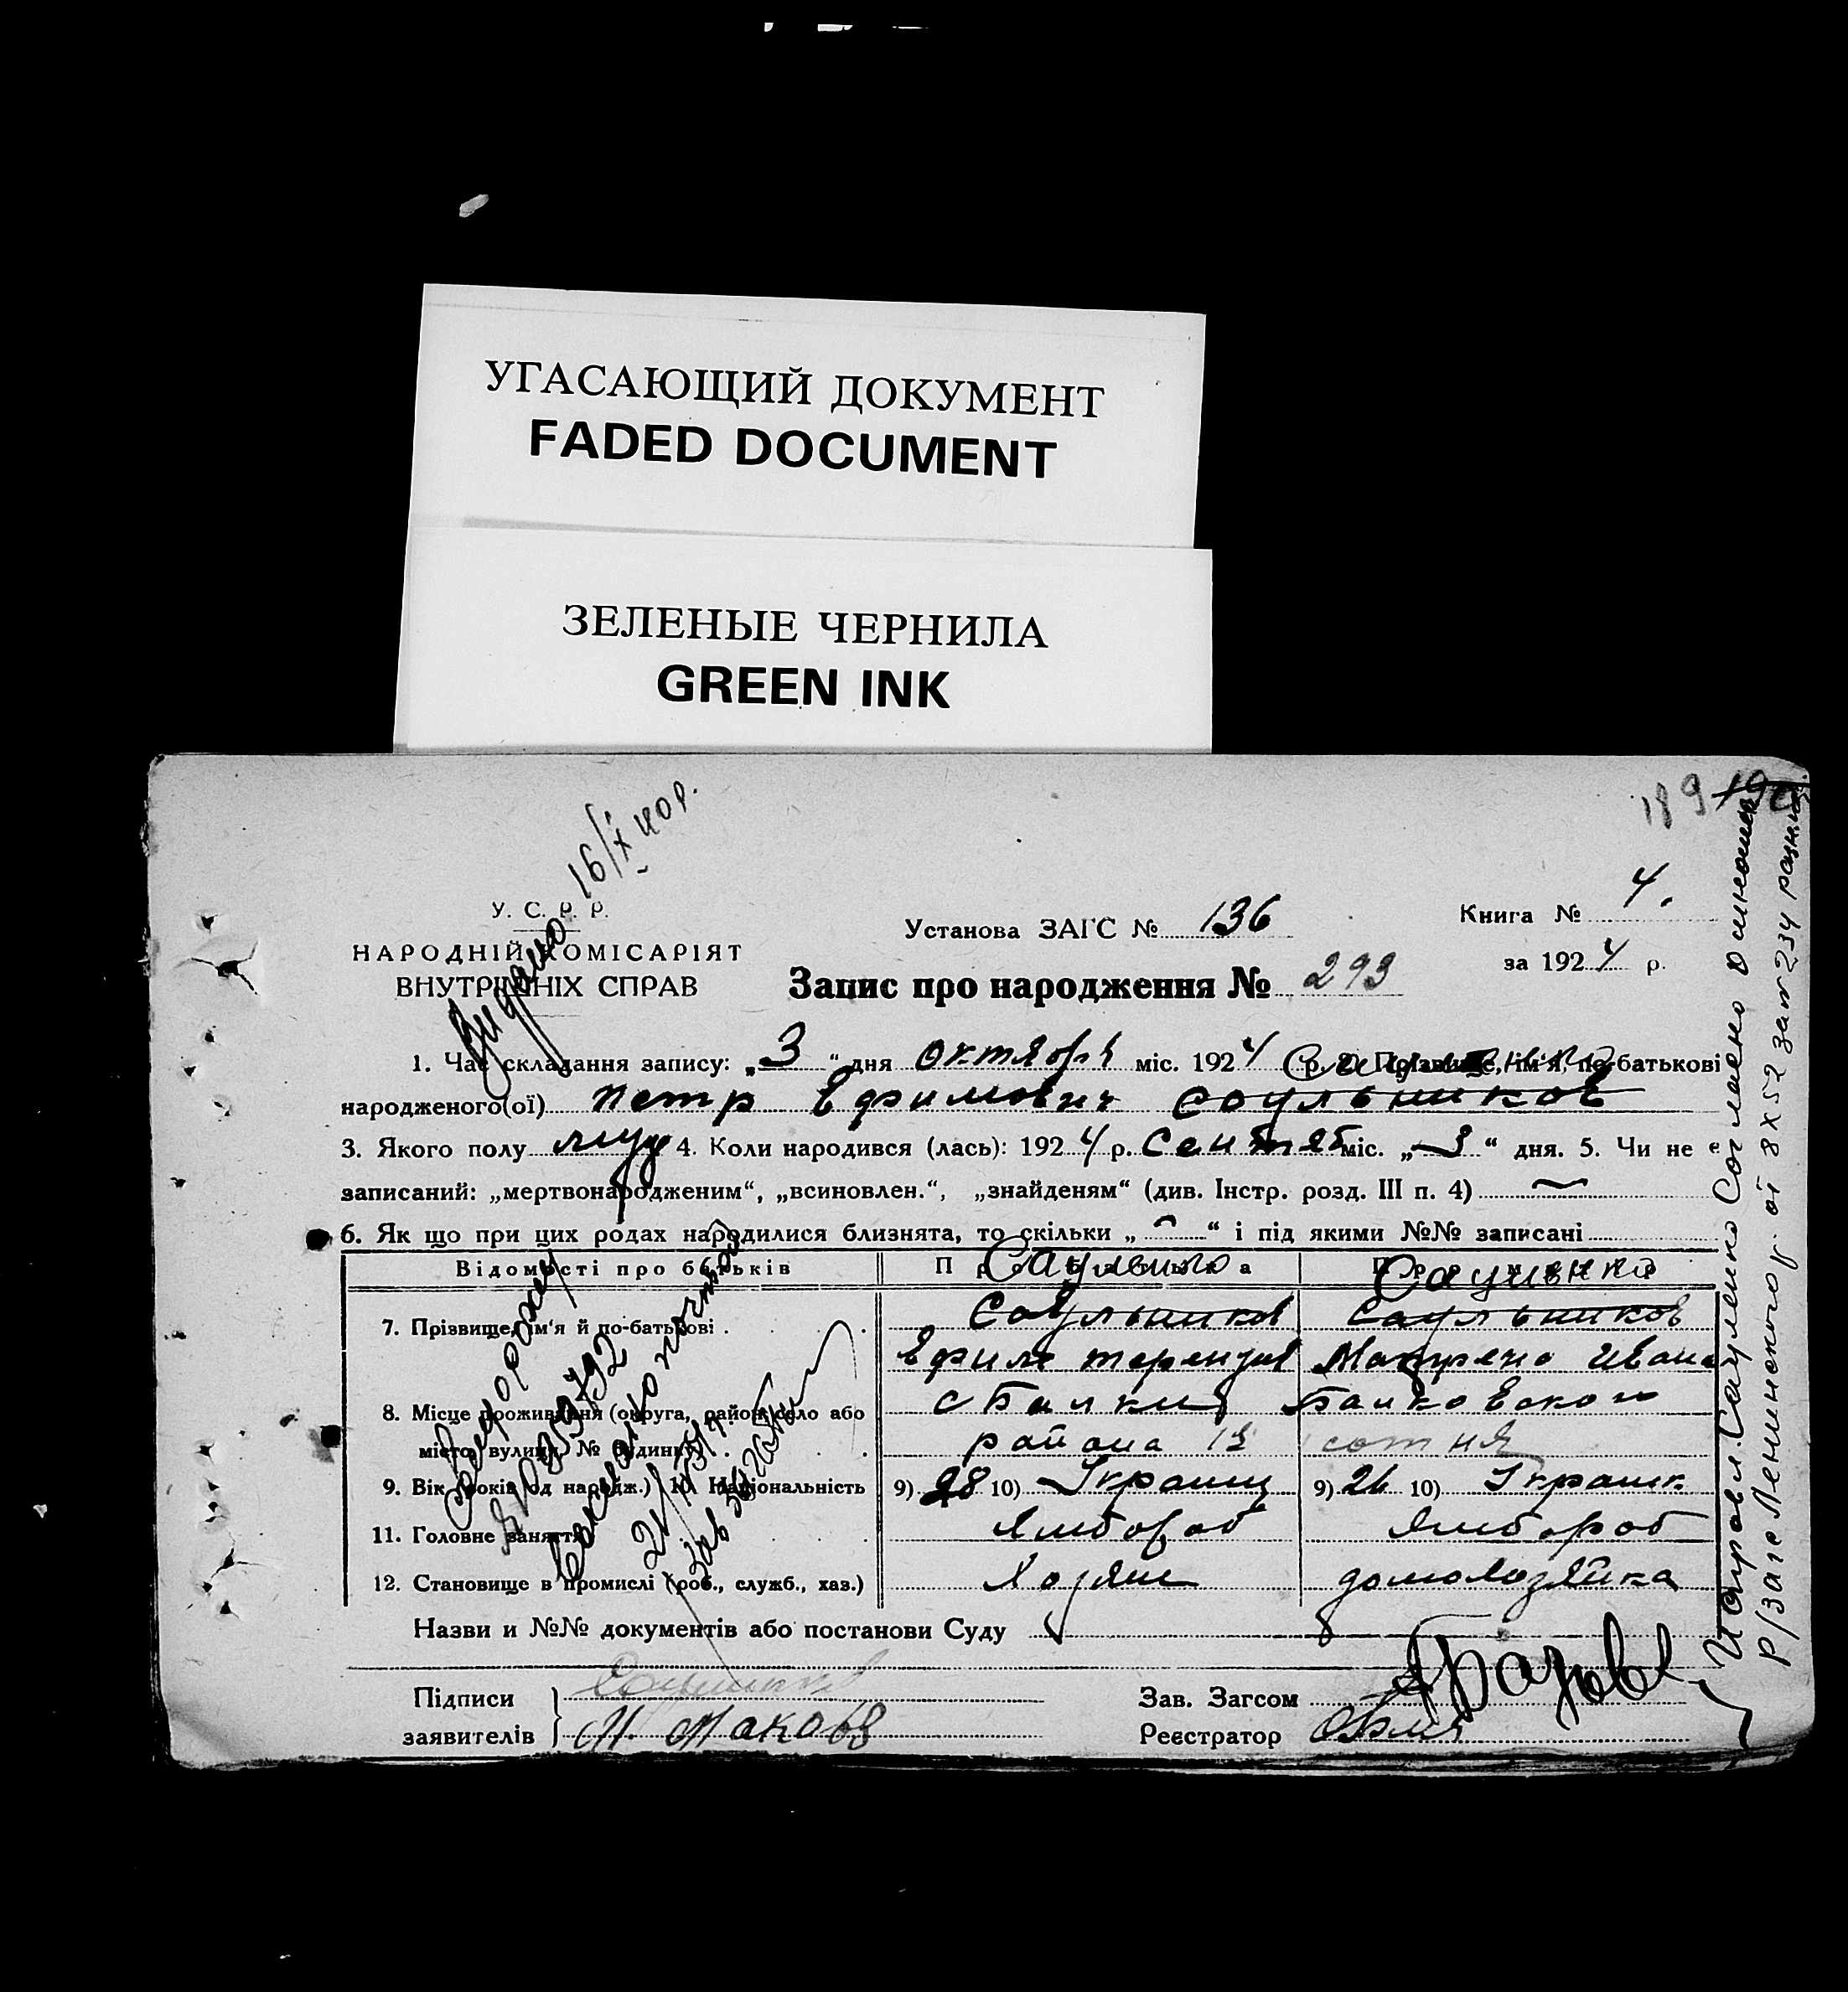 УГАСАЮЩИЙ ДОКУМЕНТ
FADED DOCUMENT
ЗЕЛЕНЫЕ ЧЕРНИЛА
GREEN INK
189
У. С. Р. Р.
НАРОДНІЙ КОМІСАРІЯТ
ВНУТРІШНІХ СПРАВ
Видано 16/X 40 р.
Установа ЗАГС № 136
Книга № 4.
за 1924 р.
Запис про народження № 293
1. Час складання запису: „3“ дня октября міс. 1924 р. 2. Прізвище, ім'я, по-батькові
Сауленко
народженого(ої) Петр Ефимович Саульников
3. Якого полу муж 4. Коли народився (лась): 1924 р. Сентяб міс. „3“ дня. 5. Чи не є
записаний: „мертвонародженим“, „всиновлен.“, „знайденям“ (див. Інстр. розд. III п. 4)
6. Як що при цих родах народилися близнята, то скільки „ “ і під якими №№ записані
Відомості про батьків
Про батька
Про неньку
Сауленко
Сауленко
7. Прізвище, ім'я й по-батькові
Саульников
Саульников
Ефим
Матрена Ивано
8. Місце проживання (округа, район, село або
місто, вулиця, № будинку)
с Балки Балковского
района 13 сотня
9. Вік (років од народж.) 10. Національність
9) 28 10) Украинц
9) 26 10) Украинк.
11. Головне заняття
Хлибороб
Хлибороб
12. Становище в промислі (роб., служб., хаз.)
Хозяин
домохозяйка
Назви и №№ документів або постанови Суду
Підписи
заявителів
М. Маков
Зав. Загсом
Реєстратор
Исправл. Сауленко Согласно
Р/загс Ленинского р. от 8 X 52 за № 234